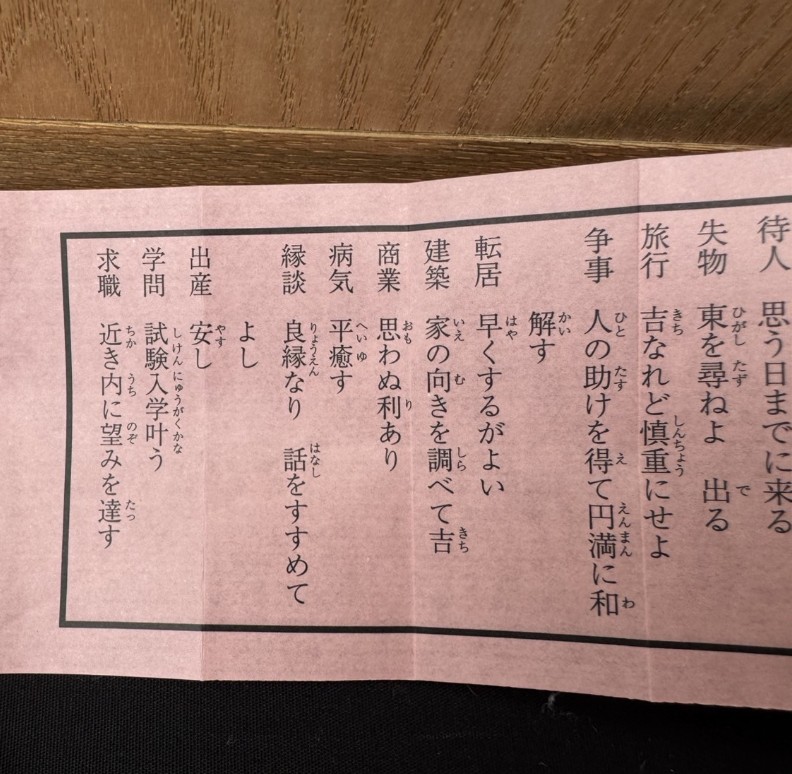 待人 思う日までに来る
失物 東を尋ねよ 出る
旅行 吉なれど慎重にせよ
争事 人の助けを得て円満に和
解す
転居 早くするがよい
建築 家の向きを調べて吉
商業 思わぬ利あり
病気 平癒す
縁談 良縁なり 話をすすめて
よし
出産 安し
学問 試験入学叶う
求職 近き内に望みを達す